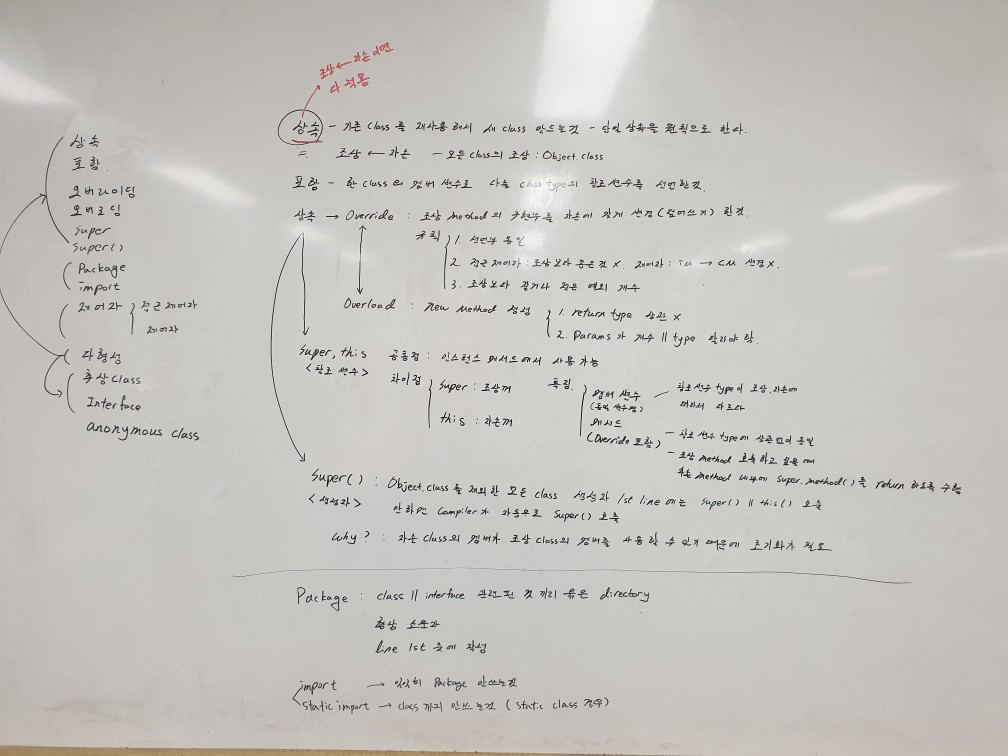 상속
포함
오버라이딩
오버로딩
super
super()
Package
import
제어자 접근 제어자
제어자
다형성
추상 Class
Interface
anonymous class
조상 ← 자손이면
다 적용
상속 - 기존 Class를 재사용해서 새 class 만드는것 - 단일 상속을 원칙으로 한다.
= 조상 ← 자손 - 모든 class의 조상 : Object.class
포함 - 한 class의 멤버 변수로 다른 class type의 참조변수를 선언한것.
상속 → Override : 조상 method의 구현부를 자손에 맞게 변경(덮어쓰기) 한것.
규칙 1. 선언부 동일
2. 접근 제어자 : 조상보다 좁은것 X. 제어자 : iM → CM 변경 X.
3. 조상보다 같거나 적은 예외 개수
Overload : new Method 생성 1. return type 상관 X
2. Params가 개수 || type 달라야 함.
super, this 공통점 : 인스턴스 메서드에서 사용가능
<참조 변수> 차이점 super : 조상꺼
this : 자손꺼
특징 멤버 변수 - 참조변수 type이 조상, 자손에
(동일 변수명) 따라서 다르다
메서드
(Override 포함) - 참조 변수 type에 상관없이 동일
- 조상 method 호출 하고 싶을 때
자손 method 내부에 super.method()를 return 하도록 수행
super() : Object.class를 제외한 모든 class 생성자 1st line에는 super() || this() 호출
<생성자> 안하면 Compiler가 자동으로 super() 호출
why? : 자손 class의 멤버가 조상 class의 멤버를 사용할 수 있기 때문에 초기화가 필요
Package : class || interface 관련된 것 끼리 묶은 directory
항상 소문자
line 1st 줄에 작성
import → 일일히 Package 안쓰는것
static import → class 까지 안쓰는것 (static class 경우)